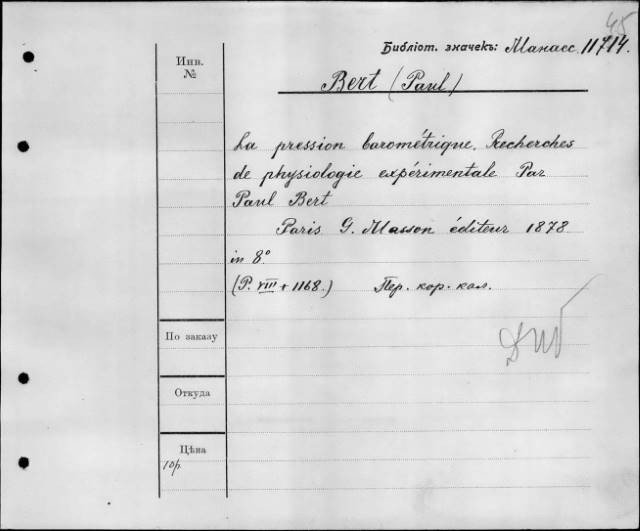 45
Библіот. значекъ: Манасс. 11714.
Инв.
№
Bert (Paul)
La pression barométrique. Recherches
de physiologie expérimentale Par
Paul Bert
Paris G. Masson éditeur 1878
in 8°
(P. VIII + 1168.) Пер. кор. кол.
По заказу
Откуда
Цѣна
10р.